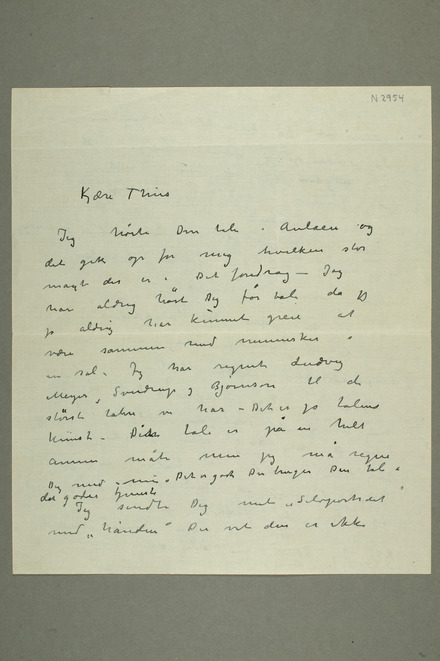 N 2954
Kjære Thiis
Jeg hørte Din tale i Aulaen og
det gik op for mig hvilken stor
magt der er i Det foredrag – Jeg
har aldrig hørt Dig før tale da jeg
jo aldrig har kunnet greie at
være sammen med mennesker i
en sal. Jeg har regnet Ludvig
Meyer, Sverdrup og Bjørnson til de
største talere vi har – Det er jo talens
kunst – Din tale er på en helt
annen måte men jeg må regne
Dig med – Det er godt Du bruger Din tale i
det godes tjeneste
Jeg sendte Dig mit „Selvportrait"
med „hånden" Du vet den er ikke